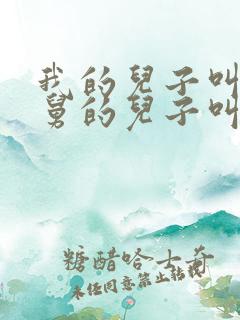 我的兒子叫
舅的兒子叫
糖醋哈士奇
未经同意禁止转载